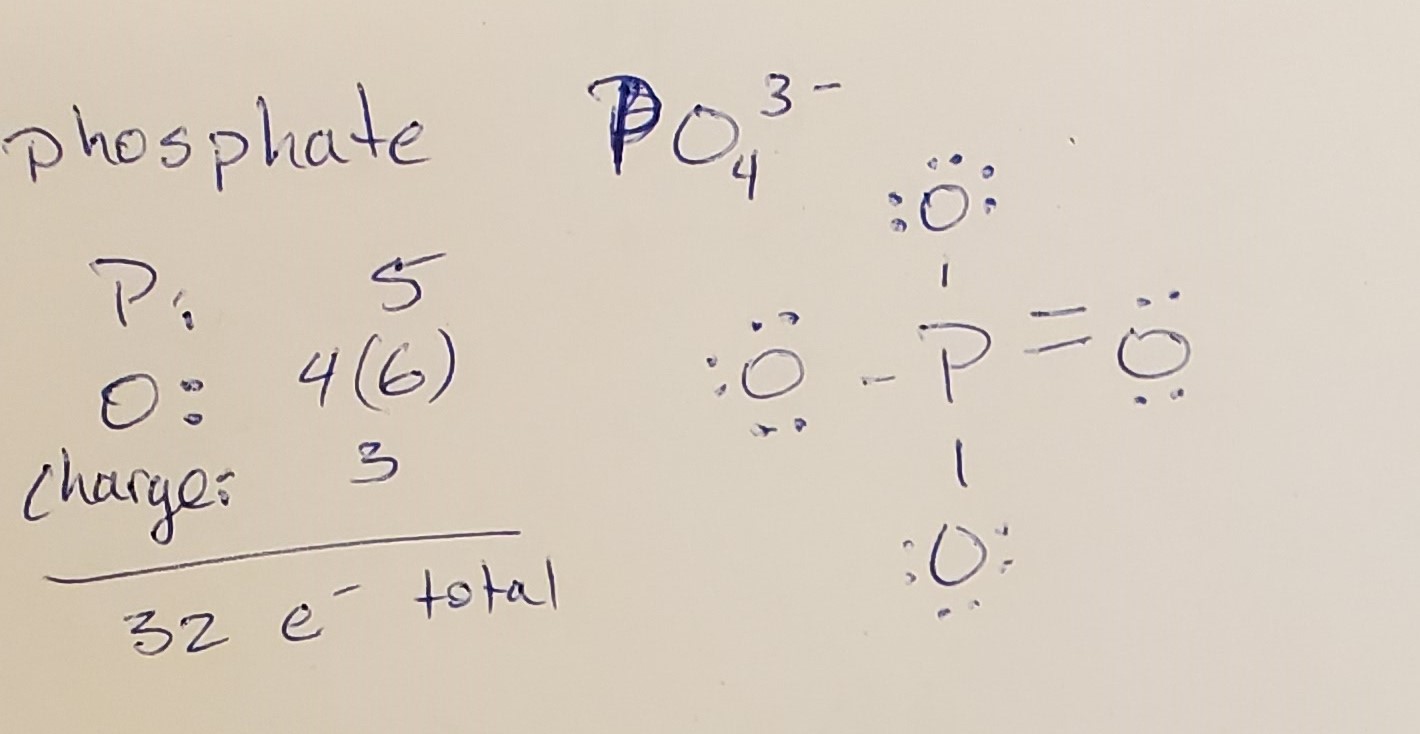 phosphate PO₄³⁻
P: 5
O: 4(6)
Charge: 3
32 e⁻ total
O
O - P = O
O